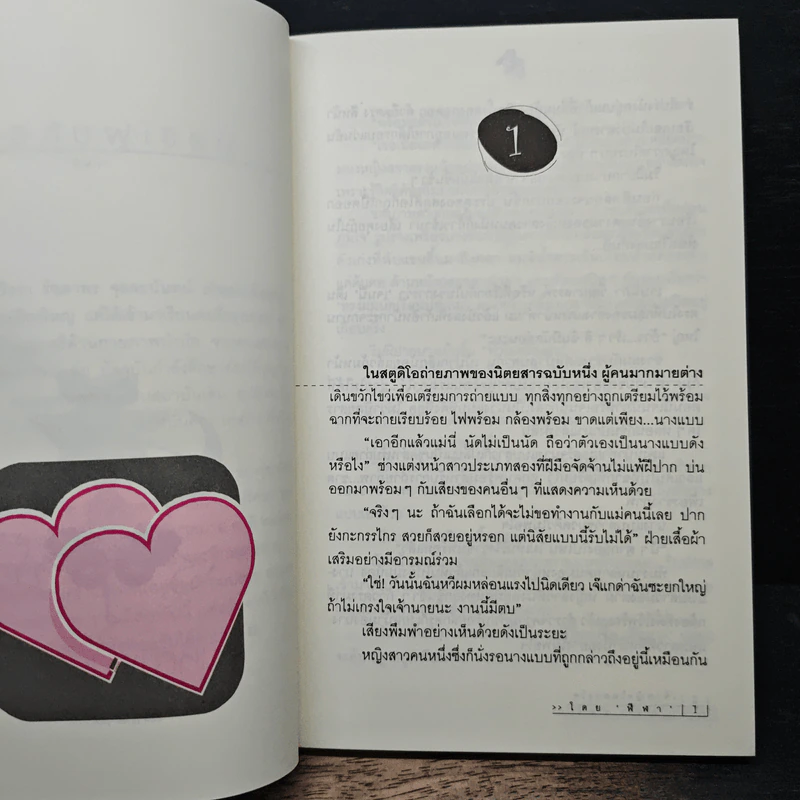 1
ในสตูดิโอถ่ายภาพของนิตยสารฉบับหนึ่ง ผู้คนมากมายต่าง
เดินขวักไขว่เพื่อเตรียมการถ่ายแบบ ทุกสิ่งทุกอย่างถูกเตรียมไว้พร้อม
ฉากที่จะถ่ายเรียบร้อย ไฟพร้อม กล้องพร้อม ขาดแต่เพียง...นางแบบ
“เอาอีกแล้วแม่นี่ นัดไม่เป็นนัด ถือว่าตัวเองเป็นนางแบบดัง
หรือไง” ช่างแต่งหน้าสาวประเภทสองที่ฝีมือจัดจ้านไม่แพ้ฝีปาก บ่น
ออกมาพร้อมๆ กับเสียงของคนอื่นๆ ที่แสดงความเห็นด้วย
“จริงๆ นะ ถ้าฉันเลือกได้จะไม่ขอทำงานกับแม่คนนี้เลย ปาก
ยังกะกรรไกร สวยก็สวยอยู่หรอก แต่นิสัยแบบนี้รับไม่ได้” ฝ่ายเสื้อผ้า
เสริมอย่างมีอารมณ์ร่วม
“ใช่! วันนั้นฉันหวีผมหล่อนแรงไปนิดเดียว เจ๊แกด่าฉันซะยกใหญ่
ถ้าไม่เกรงใจเจ้านายนะ งานนี้มีตบ”
เสียงพึมพำอย่างเห็นด้วยดังเป็นระยะ
หญิงสาวคนหนึ่งซึ่งก็นั่งรอนางแบบที่ถูกกล่าวถึงอยู่นี้เหมือนกัน
>> โดย 'ฬีฬา' | 7